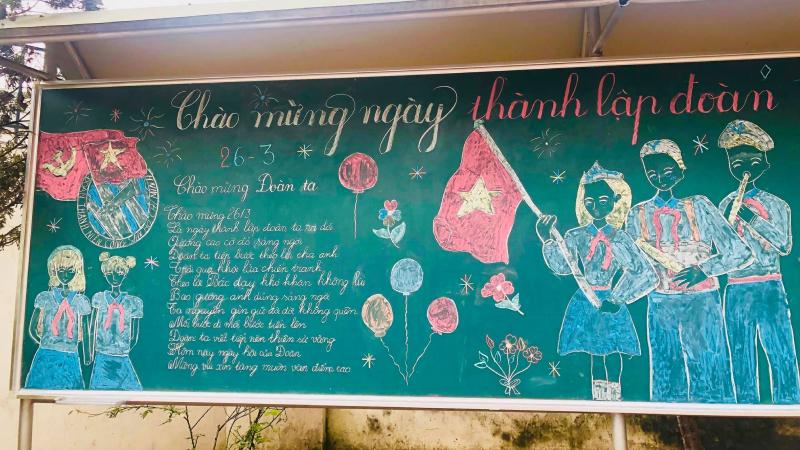 Chào mừng ngày thành lập đoàn
26-3
Chào mừng Đoàn ta
Chào mừng 26/3
Là ngày thành lập đoàn ta ra đời
Gương cao cờ đỏ sáng ngời
Đoàn ta tiếp bước theo lời cha anh
Trải qua khói lửa chiến tranh
Theo lời Bác dạy khó khăn không lùi
Bao gương anh dũng sáng ngời
Ta nguyện gìn giữ đời đời không quên
Mỗi bước đi mỗi bước tiến lên
Đoàn ta viết tiếp nên thiên sử vàng
Hôm nay ngày hội của Đoàn
Mừng vui xin tặng muôn vàn điểm cao